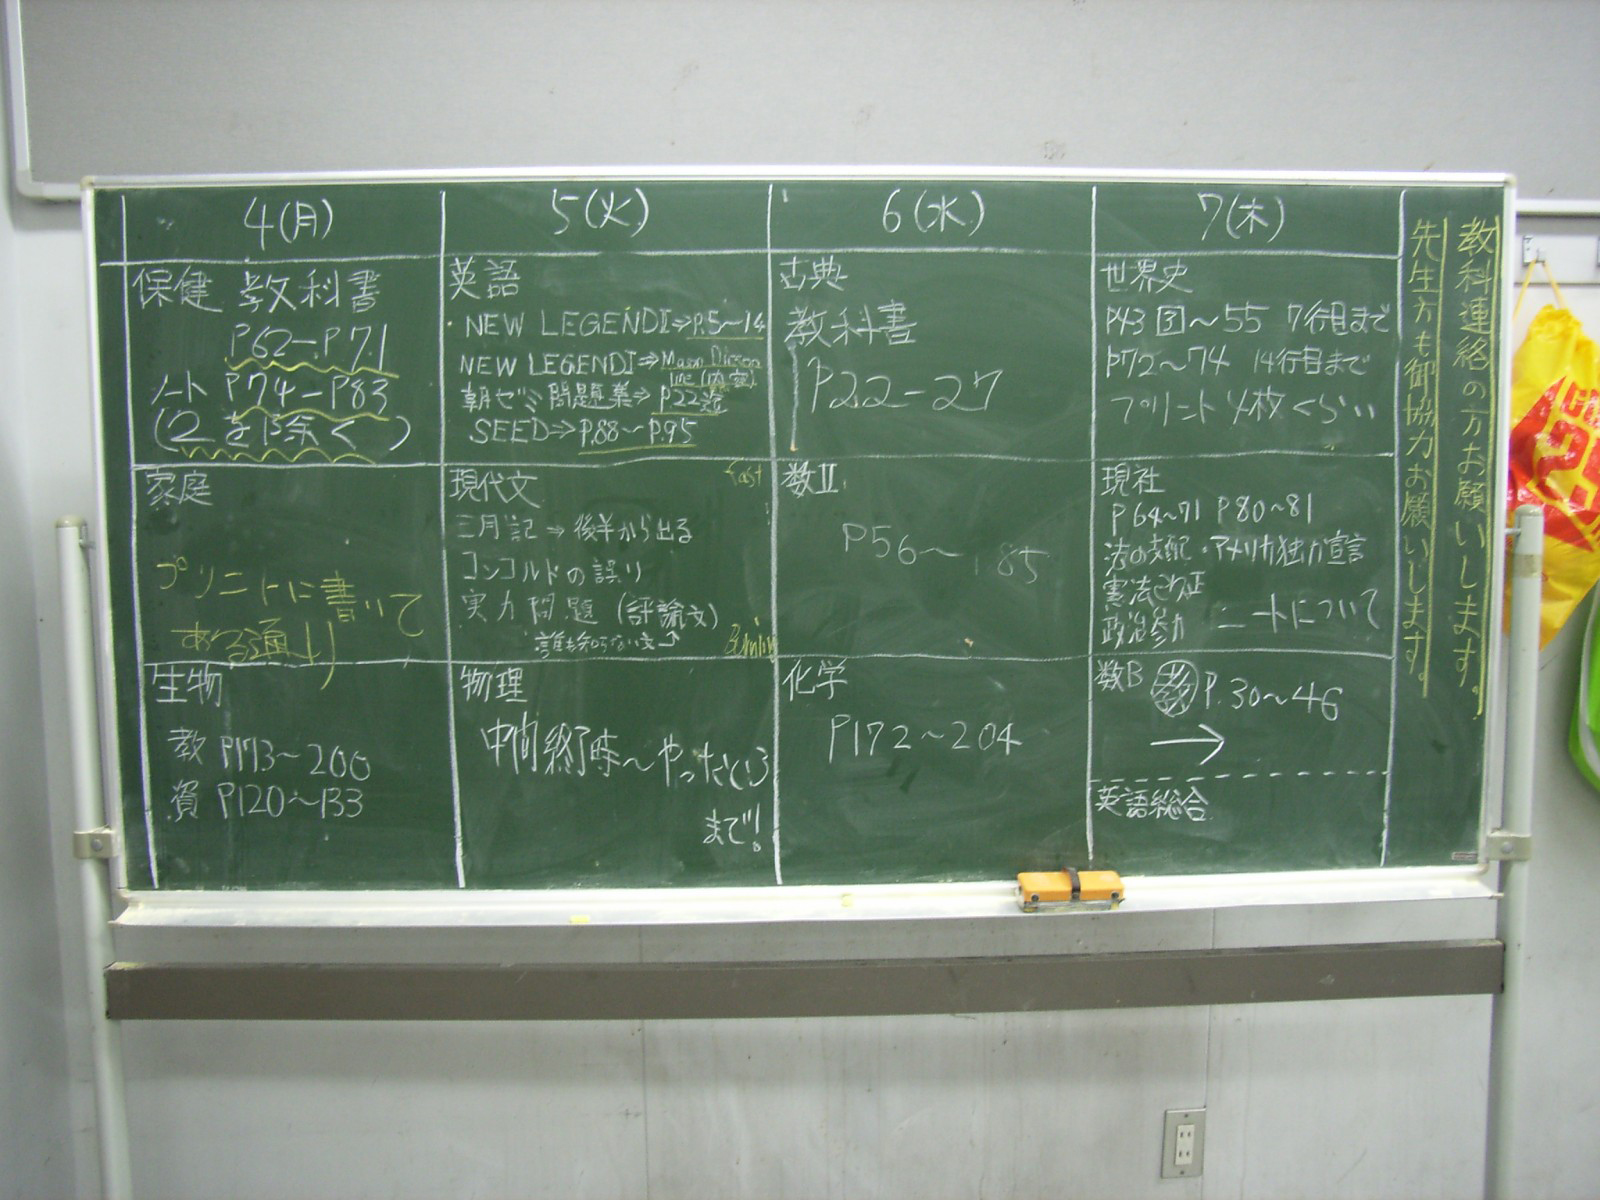 4(月)
保健 教科書
P62-P71
ノート P74-P83
(2を除く)
家庭
プリントに書いて
ある通り
生物
教 P173～200
資 P120～133
5(火)
英語
・NEW LEGENDI⇒P.5～14
NEW LEGENDI⇒
朝ゼミ問題業⇒P22迄
SEED⇒P.88～P.95
現代文
三月記⇒後半から出る
コンコルドの誤り
実力問題(評論文)
誰も知らない文
物理
中間終了時～やったところ
まで!
6(水)
古典
教科書
P22-27
数II
P56～185
化学
P172～204
7(木)
世界史
P43 3～55 7行目まで
P72～74 14行目まで
プリント 4枚くらい
現社
P64～71 P80～81
法の支配・アメリカ独立宣言
憲法改正
政治参加 ニートについて
数B 教 P.30～46
→
英語総合
教科連絡の方お願いします。
先生方も御協力お願いします。